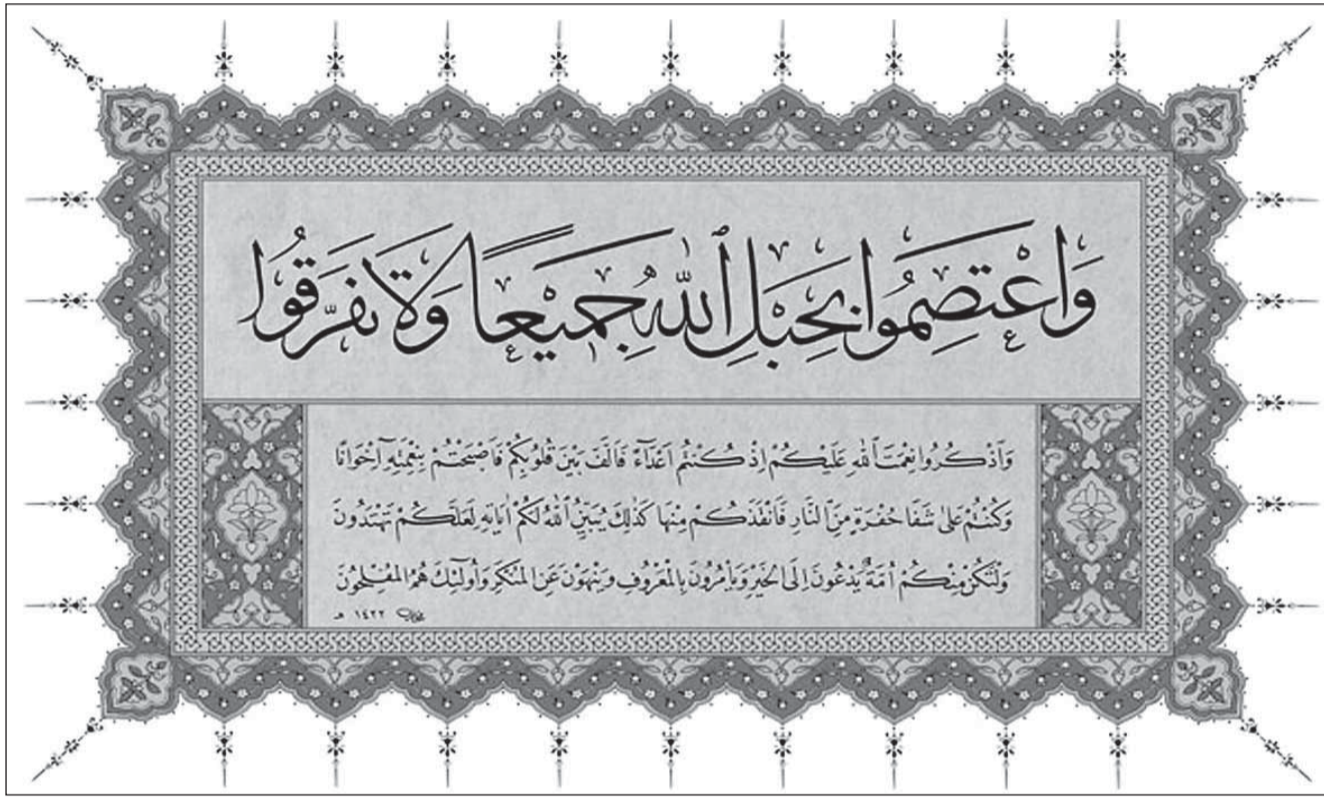 وَاعْتَصِمُوا بِحَبْلِ ٱللّٰهِ جَمِيْعًا وَلَا تَفَرَّقُوا
وَٱذْكُرُوا نِعْمَتَ ٱللّٰهِ عَلَيْكُمْ اِذْ كُنْتُمْ اَعْدَآءً فَاَلَّفَ بَيْنَ قُلُوْبِكُمْ فَاَصْبَحْتُمْ بِنِعْمَتِهٖٓ اِخْوَانًا
وَكُنْتُمْ عَلٰى شَفَا حُفْرَةٍ مِنَ ٱلنَّارِ فَاَنْقَذَكُمْ مِنْهَا كَذٰلِكَ يُبَيِّنُ ٱللّٰهُ لَكُمْ اٰيَاتِهِ لَعَلَّكُمْ تَهْتَدُونَ
وَلْتَكُنْ مِنْكُمْ اُمَّةٌ يَدْعُونَ اِلَى الْخَيْرِ وَيَأْمُرُونَ بِالْمَعْرُوفِ وَيَنْهَوْنَ عَنِ الْمُنْكَرِ وَاُولٰٓئِكَ هُمُ الْمُفْلِحُونَ
١٤٢٢ هـ